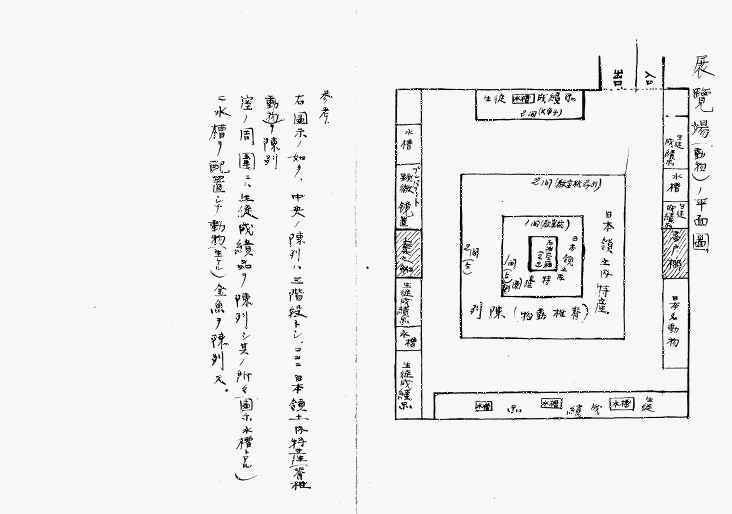 展覽場(動物)ノ平面圖
出口
入口
生徒 水槽 成績品
2間
生徒成績品
水槽
生徒成績品
戸棚
日本名動物
水槽
顕微鏡
プレパラート
生徒成績品
水槽
生徒成績品
生徒 水槽 成 績 水槽 品 水槽
2間
日本領土内特産
陳列(脊椎動物)
2間
1間
日本領土
特産
1間
参考
右圖示ノ如ク、中央ノ陳列ハ三階段トシ、ココニ日本領土内特産(脊椎
動物ヲ陳列
室ノ周圍ニハ生徒成績品ヲ陳列シ其ノ所々(圖示水槽トアル)
ニ水槽ヲ配置シテ動物(生キタル)金魚ヲ陳列ス。